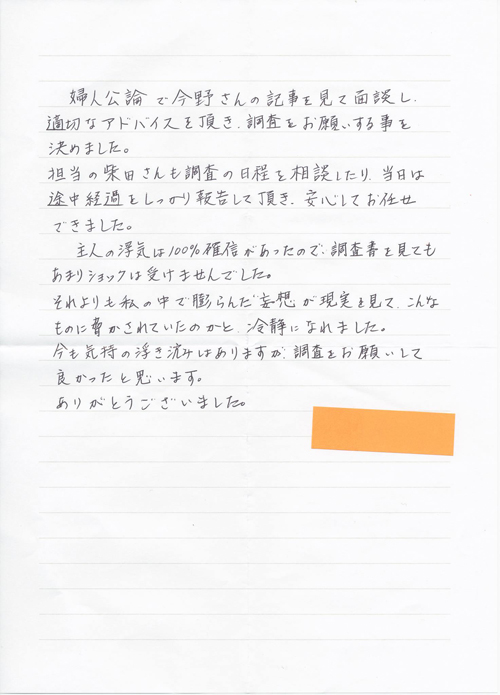 婦人公論で今野さんの記事を見て面談し、
適切なアドバイスを頂き、調査をお願いする事を
決めました。
担当の柴田さんも調査の日程を相談したり、当日は
途中経過をしっかり報告して頂き、安心してお任せ
できました。
主人の浮気は100%確信があったので、調査書を見ても
あまりショックは受けませんでした。
それよりも私の中で膨らんだ妄想が現実を見て、こんな
ものに脅かされていたのかと、冷静になれました。
今も気持の浮き沈みはありますが、調査をお願いして
良かったと思います。
ありがとうございました。